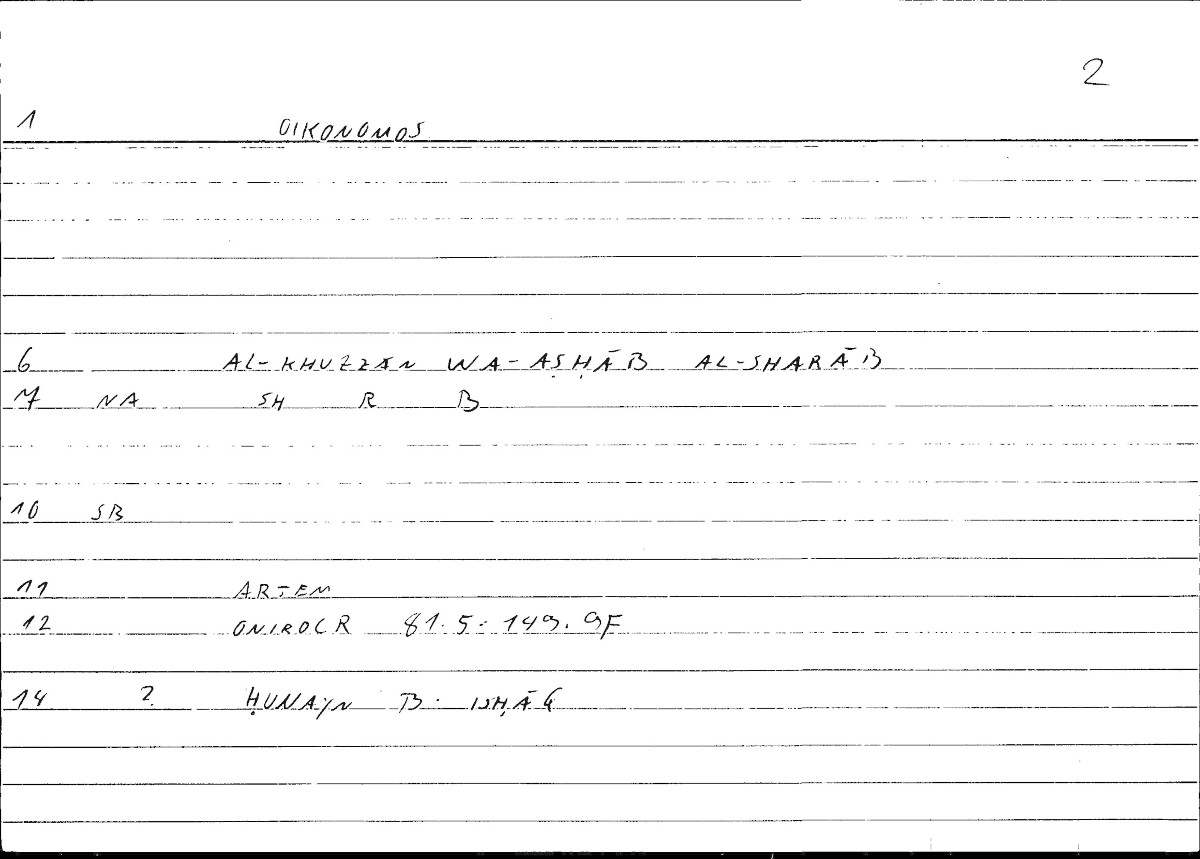 2
1 OIKONOMOS
6 AL-KHUZZĀN WA-AṢḤĀB AL-SHARĀB
7 NA SH R B
10 SB
11 ARTEM
12 ONIROCR 81.5:149.9F
14 ? ḤUNAYN B. ISḤĀQ